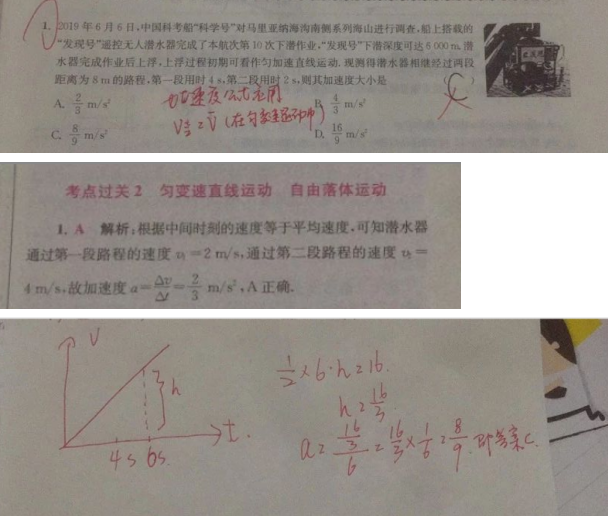 1. 2019年6月6日,中国科考船“科学号”对马里亚纳海沟南侧系列海山进行调查,船上搭载的
“发现号”遥控无人潜水器完成了本航次第10次下潜作业,“发现号”下潜深度可达6 000 m.潜
水器完成作业后上浮,上浮过程初期可看作匀加速直线运动.现测得潜水器相继经过两段
距离为8 m的路程,第一段用时4 s,第二段用时2 s,则其加速度大小是 ( C )
A. 2/3 m/s² B. 4/3 m/s²
速度公式应用
V = v̄ (在匀变速运动中)
C. 8/9 m/s² D. 16/9 m/s²
考点过关2 匀变速直线运动 自由落体运动
1. A 解析:根据中间时刻的速度等于平均速度,可知潜水器
通过第一段路程的速度 v₁=2 m/s,通过第二段路程的速度 v₂=
4 m/s,故加速度 a=Δv/Δt=2/3 m/s²,A正确.
V
h
t.
4s 6s.
1/2×6·h=16.
h=16/3
a=(16/3)/6=16/3×1/6=8/9.即答案C.